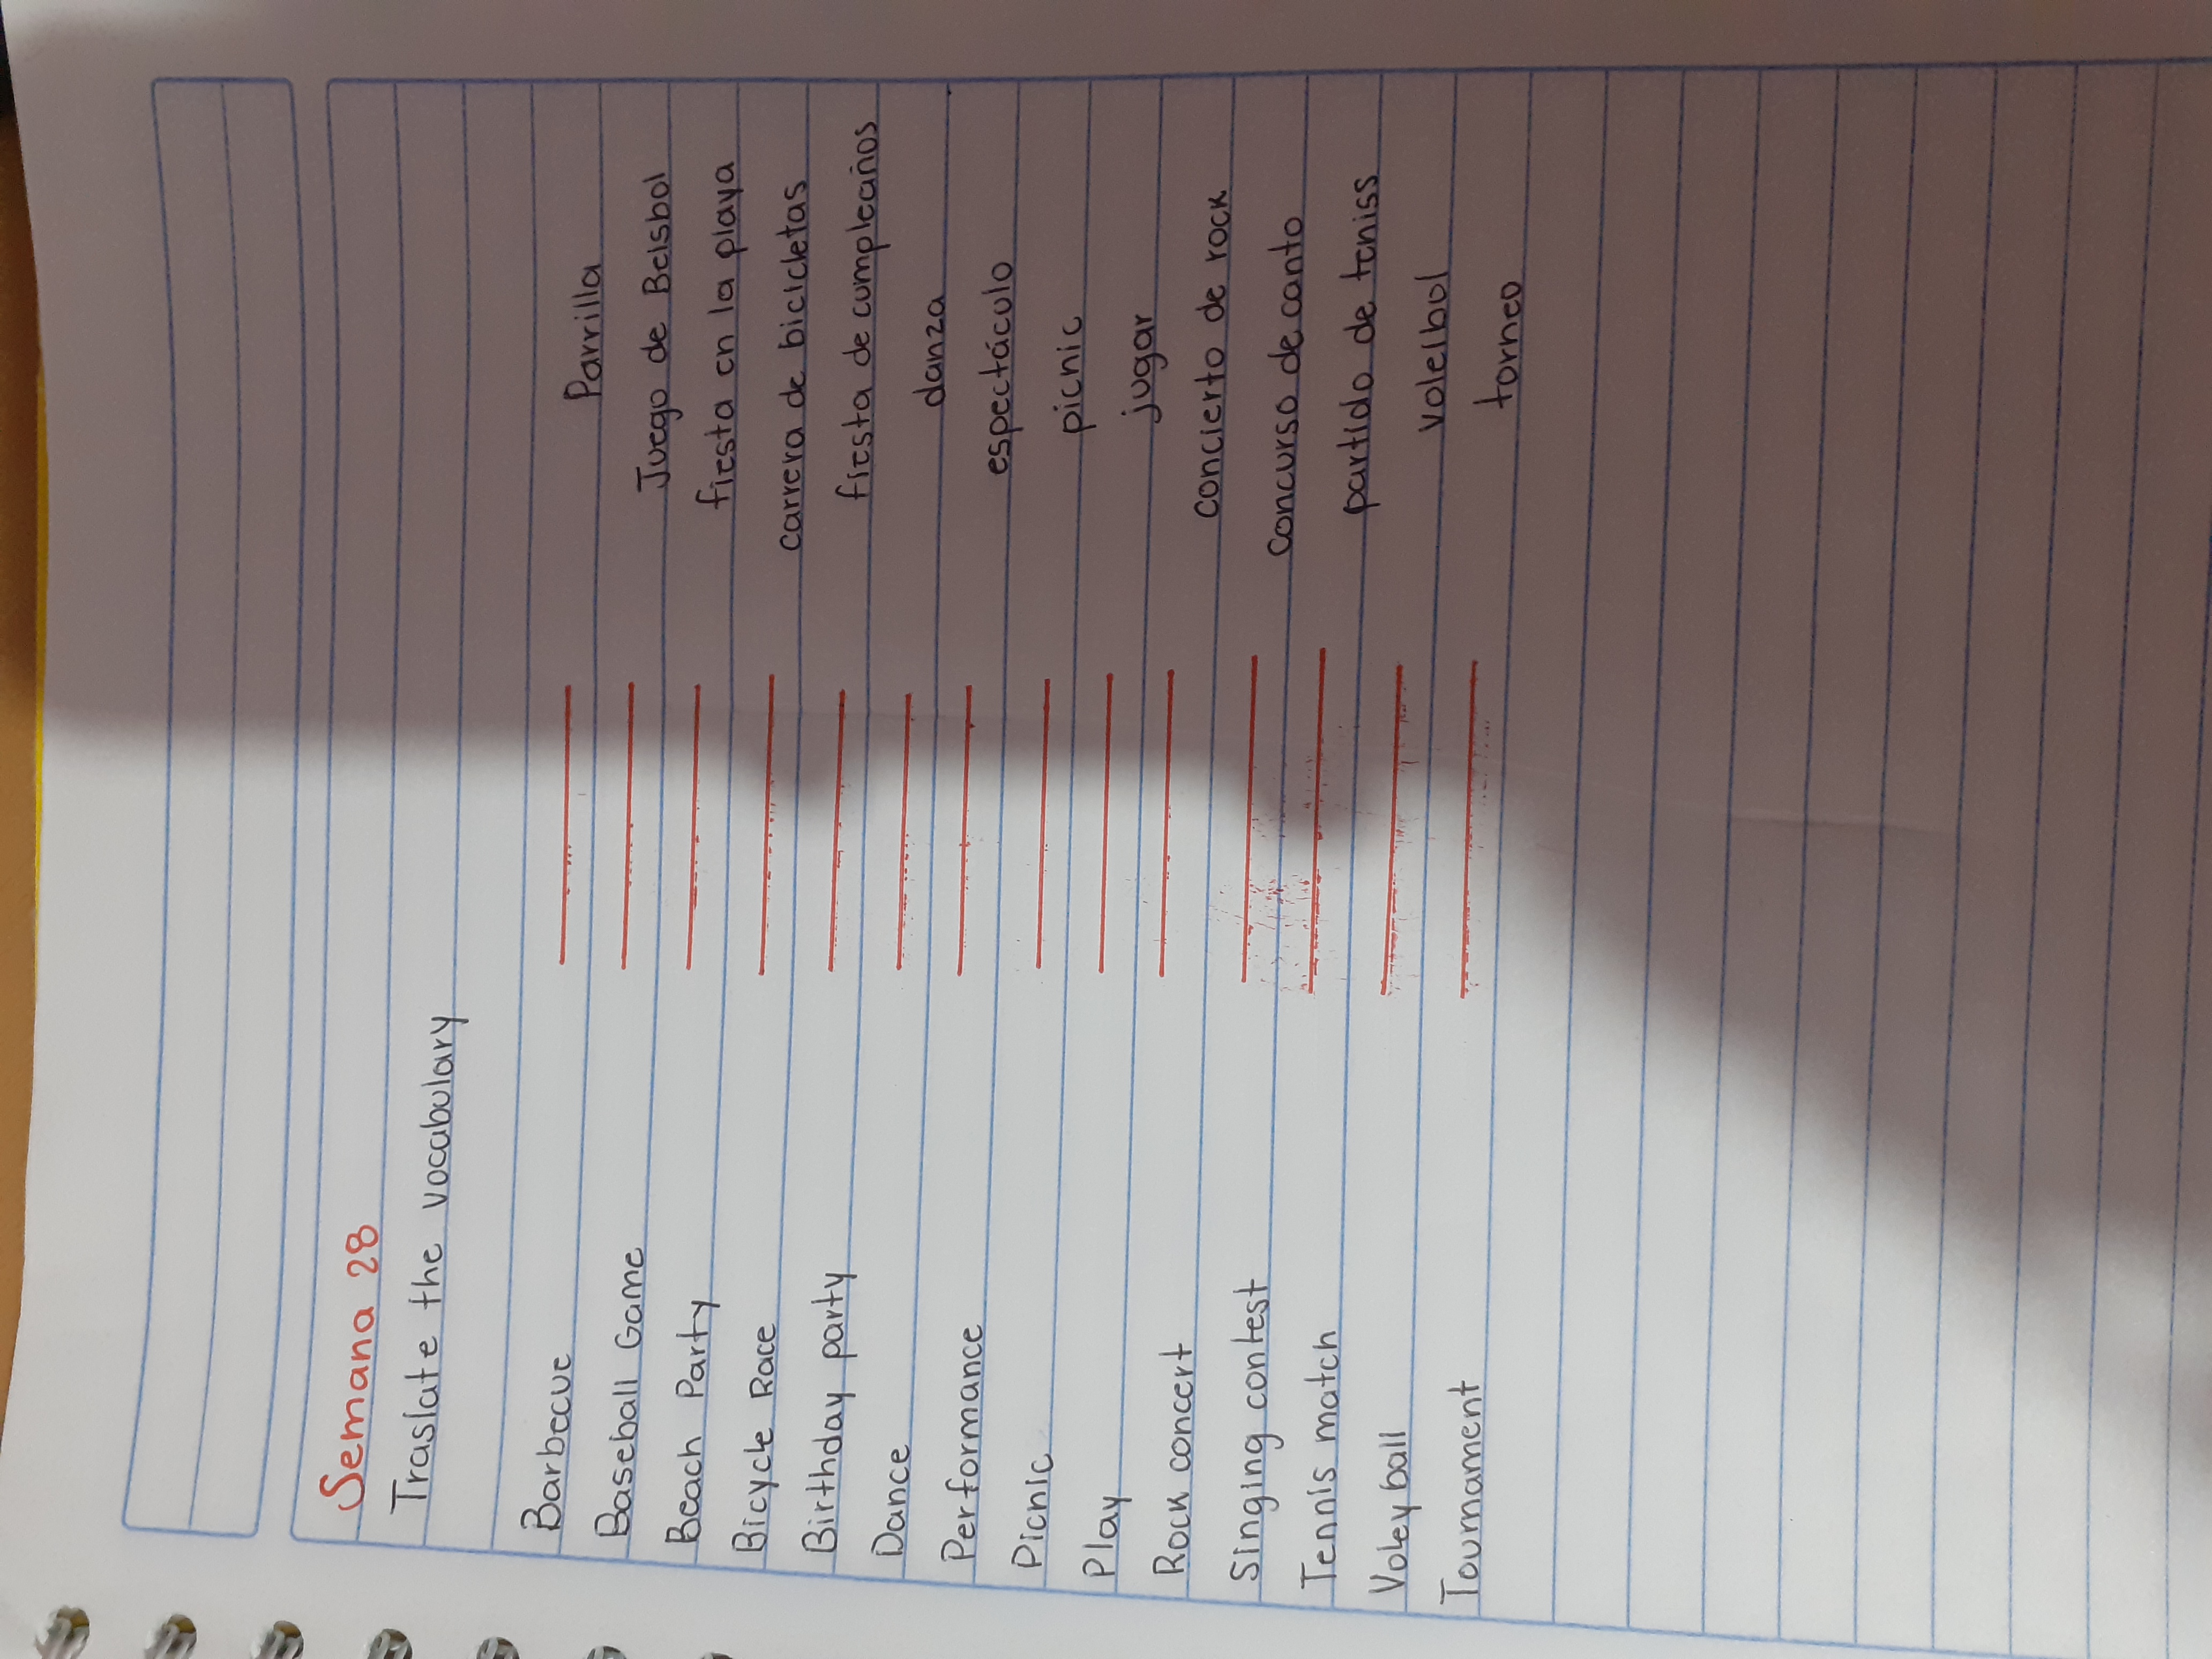 Semana 28
Traslate the vocabulary
Barbecue Parrilla
Baseball Game Juego de Beisbol
Beach Party fiesta en la playa
Bicycle Race carrera de bicicletas
Birthday party fiesta de cumpleaños
Dance danza
Performance espectáculo
Picnic picnic
Play jugar
Rock concert concierto de rock
Singing contest concurso de canto
Tennis match partido de teniss
Voleyball voleibol
Tournament torneo